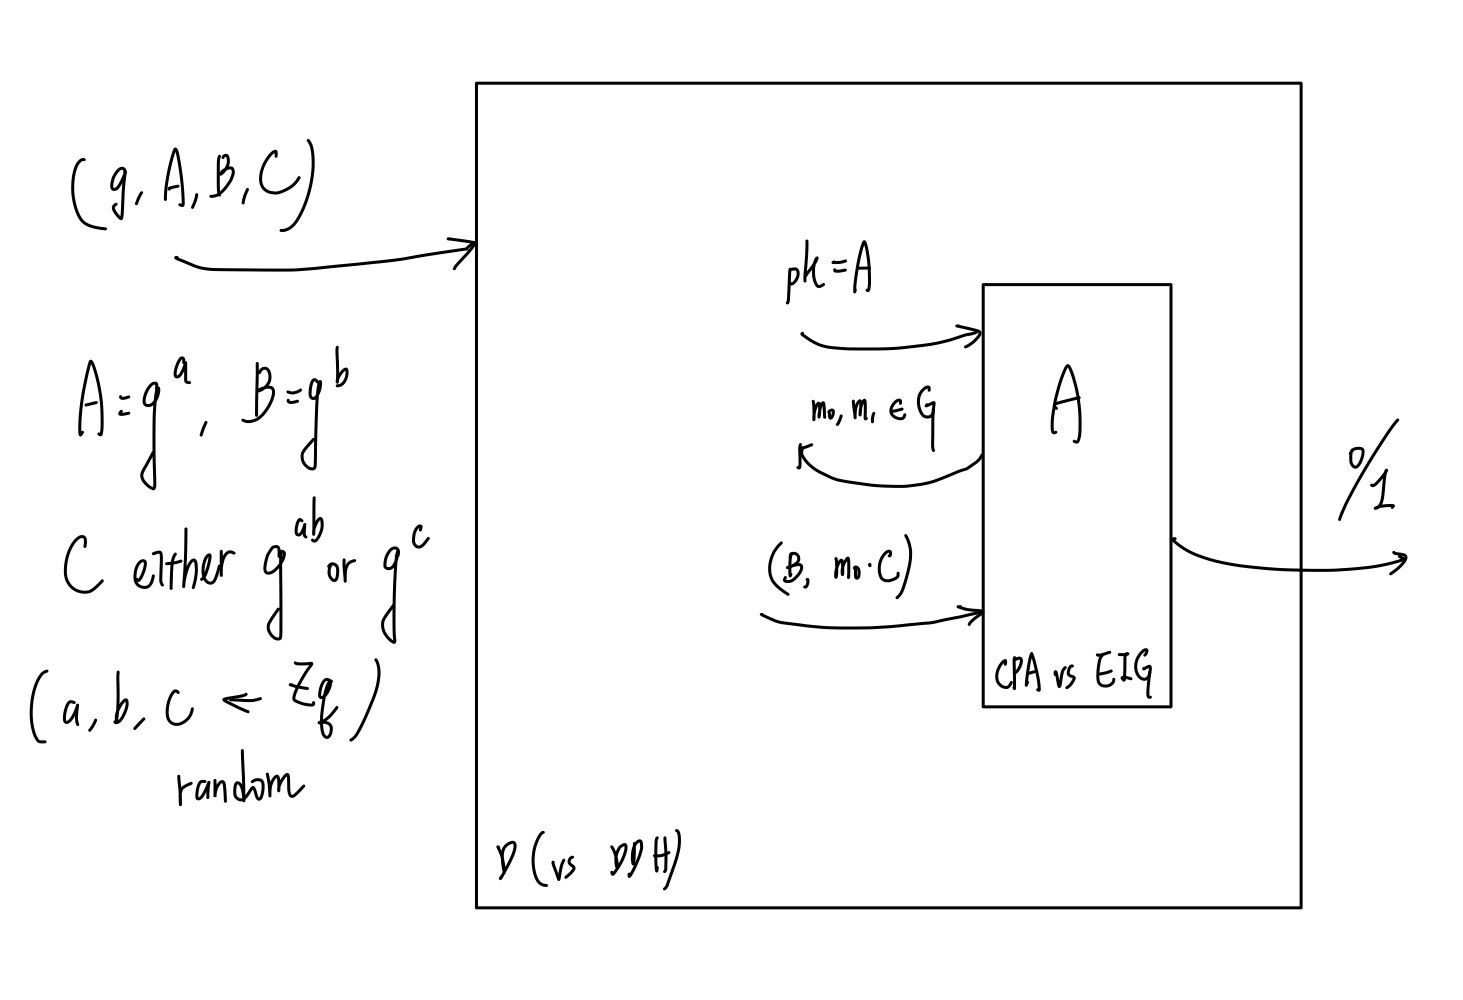 (g, A, B, C)
A = g^a, B = g^b
C either g^ab or g^c
(a, b, c ← Zq)
random
pk = A
m₀, m₁ ∈ G
(B, m₀·C)
A
CPA vs EIG
0/1
D (vs DDH)